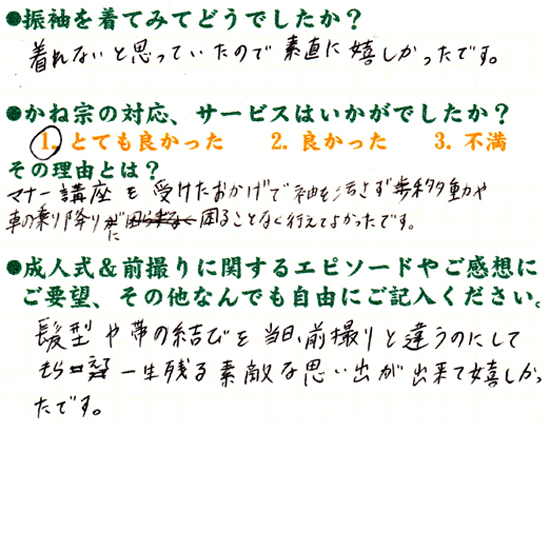 ●振袖を着てみてどうでしたか？
着れないと思っていたので素直に嬉しかったです。
●かね宗の対応、サービスはいかがでしたか？
1. とても良かった 2. 良かった 3. 不満
その理由とは？
マナー講座を受けたおかげで袖を汚さず歩移動や
車の乗り降りに困ることなく行えてよかったです。
●成人式＆前撮りに関するエピソードやご感想に
ご要望、その他なんでも自由にご記入ください。
髪型や帯の結びを当日、前撮りと違うのにして
もらえ 一生残る素敵な思い出が出来て嬉しかっ
たです。